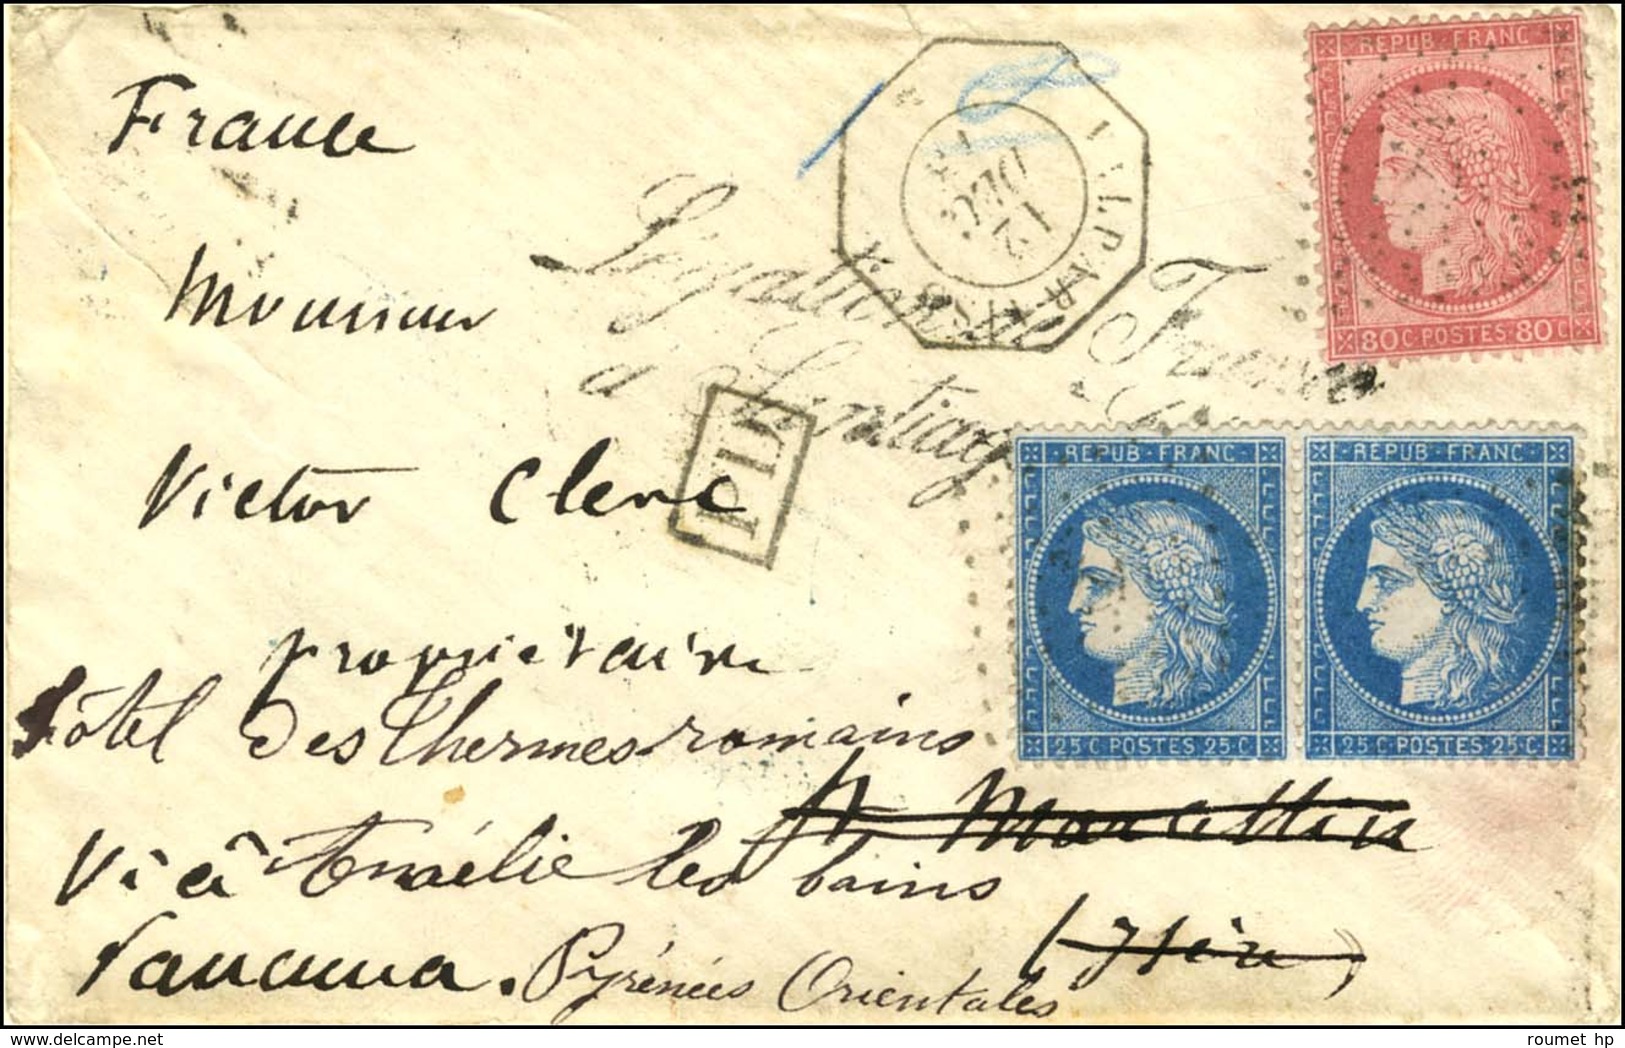 France
Monsieur
Victor Clerc
propriétaire
hôtel des Thermes romains
St Marcellin
Viâ Amélie les bains
(Isère)
Panama. Pyrénées Orientales
Légation de France
à Santiago
PD
VALPARAISO
12
DEC
REPUB FRANC
80 C POSTES 80 C
REPUB FRANC
25 C POSTES 25 C
REPUB FRANC
25 C POSTES 25 C
roumet hp